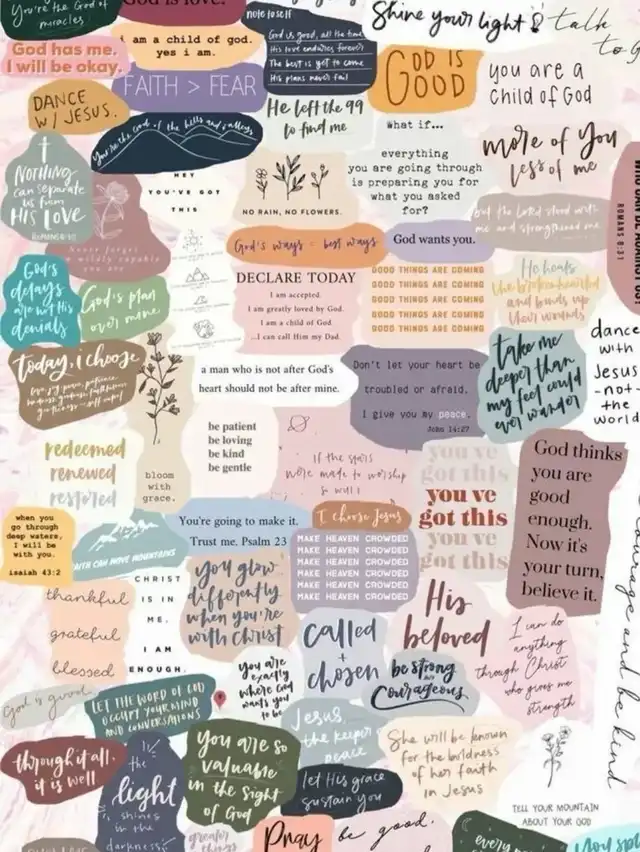 You're the God of
miracles
God is love.
note to self
God is good, all the time
His love endures forever
The best is yet to come
His plans never fail
Shine your light
talk
to
God has me.
I will be okay.
i am a child of god.
yes i am.
FAITH > FEAR
GOD IS
GOOD
you are a
child of God
DANCE
W/ JESUS.
You're the God of the hills and valleys
He left the 99
to find me
what if...
everything
you are going through
is preparing you for
what you asked
for?
more of You
less of me
NOTHING
can separate
us from
HIS LOVE
ROMANS 8:39
HEY
YOU'VE GOT
THIS
NO RAIN, NO FLOWERS.
but the Lord stood with
me and strengthened me
ROMANS 8:31
Never forget
how wildly capable
you are
God's ways = best ways
God wants you.
God's
delays
are not His
denials
God's plan
over mine
DECLARE TODAY
I am accepted.
I am greatly loved by God.
I am a child of God
...I can call Him my Dad.
GOOD THINGS ARE COMING
GOOD THINGS ARE COMING
GOOD THINGS ARE COMING
GOOD THINGS ARE COMING
GOOD THINGS ARE COMING
He heals
the brokenhearted
and binds up
their wounds
dance
with
Jesus
-not-
the
world
today, i choose
love, joy, peace, patience,
kindness, goodness, faithfulness
gentleness self control
a man who is not after God's
heart should not be after mine.
Don't let your heart be
troubled or afraid.
I give you my peace.
John 14:27
take me
deeper than
my feet could
ever wander
redeemed
renewed
restored
bloom
with
grace.
be patient
be loving
be kind
be gentle
if the stars
were made to worship
so will i
you've
got this
you've
got this
you've
got this
God thinks
you are
good
enough.
Now it's
your turn,
believe it.
when you
go through
deep waters,
I will be
with you.
isaiah 43:2
FAITH CAN MOVE MOUNTAINS
You're going to make it.
Trust me. Psalm 23
I choose Jesus
MAKE HEAVEN CROWDED
MAKE HEAVEN CROWDED
MAKE HEAVEN CROWDED
MAKE HEAVEN CROWDED
MAKE HEAVEN CROWDED
thankful
grateful
blessed
CHRIST
IS IN
ME.
I AM
ENOUGH.
you glow
differently
when you're
with Christ
called
+
chosen
His
beloved
I can do
anything
through Christ
who gives me
strength
courage and be kind
God is good
LET THE WORD OF GOD
OCCUPY YOUR MIND
AND CONVERSATIONS
you are
exactly
where God
wants you
to be
be strong
and
Courageous
Jesus,
the keeper
of my
peace
through it all,
it is well
the
light
shines
in the
darkness
you are so
valuable
in the sight
of God
let His grace
sustain you
She will be known
for the boldness
of her faith
in Jesus
TELL YOUR MOUNTAIN
ABOUT YOUR GOD
greater
things
Pray
be good.
every